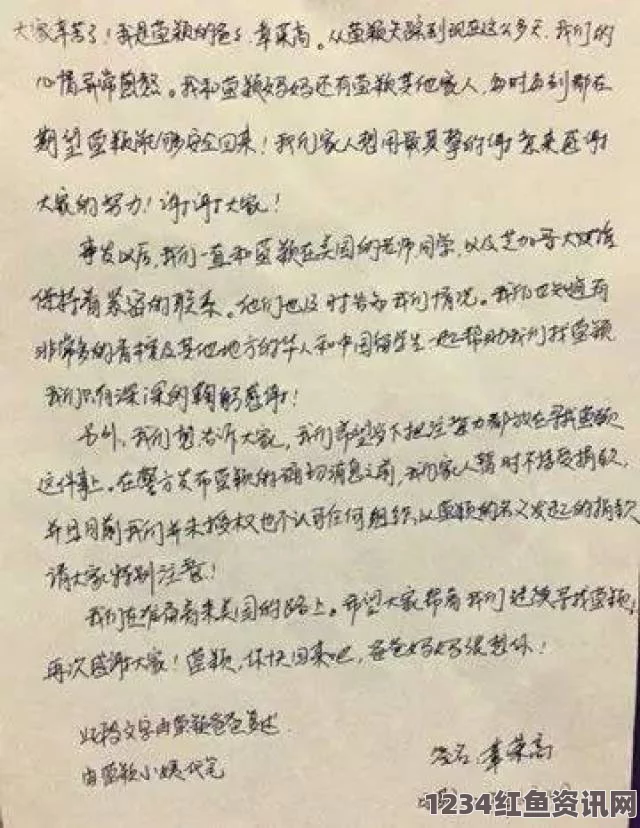 大家辛苦了！我是莹颖的爸爸章荣高。从莹颖失踪到现在这么多天，我们的
心情异常焦怒。我和莹颖妈妈还有莹颖其他家人，每时每刻都在
期望莹颖能够安全回来！我们家人想用最真挚的谢意来感谢
大家的努力！谢谢大家！
事发以后，我们一直和莹颖在美国的老师同学，以及芝加哥大使馆
保持着紧密的联系。他们也及时告知我们情况。我们也知道有
非常多的香槟及其他地方的华人和中国留学生一起帮助我们找莹颖
我们只有深深的鞠躬感谢！
另外，我们想告诉大家，我们希望当下把注意力都放在寻找莹颖
这件事上。在警方发布莹颖的确切消息之前，我们家人暂时不接受捐款，
并且目前我们并未授权也不认可任何组织以莹颖的名义发起的捐款
请大家特别注意！
我们正准备着来美国的路上。希望大家帮着我们继续寻找莹颖，
再次感谢大家！莹颖，你快回来吧，爸爸妈妈很想你！
此稿文字由莹颖爸爸复述
由莹颖小姨代写
签名：章荣高
1234红鱼资讯网